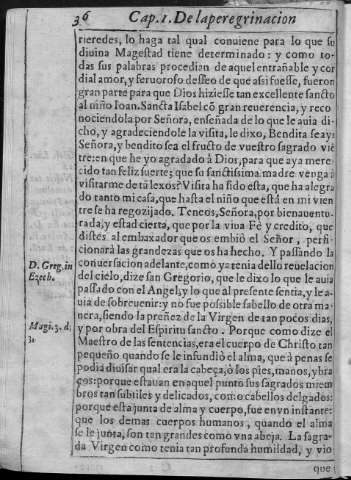 36 Cap. 1. De la peregrinacion
rieredes, lo haga tal qual conuiene para lo que su
diuina Magestad tiene determinado: y como to-
das sus palabras procedian de aquel entrañable y cor
dial amor, y feruorofo desseo de que assi fuesse, fueron
gran parte para que Dios hiziesse tan excellente sancto
al niño Ioan. Sancta Isabel cõ gran reuerencia, y reco
nociendola por Señora, enseñada de lo que le auia di-
cho, y agradeciendole la visita, le dixo, Bendita seays
Señora, y bendito sea el fructo de vuestro sagrado vië
tre: en que he yo agradado à Dios, para que aya mere-
cido tan feliz suerte; que su sanctissima madre venga à
visitarme de tã lexos? Visita ha sido esta, que ha alegra
do tanto mi casa, que hasta el niño que està en mi vien
tre se ha regozijado. Teneos, Señora, por bienauentu-
rada; y estad cierta, que por la viua Fè y credito, que
distes al embaxador que os embiò el Señor, perfi-
cionarà las grandezas que os ha hecho. Y passando la
D. Greg. in
Ezech.
conuersacion adelante, como ya tenia dello reuelacion
del cielo, dize san Gregorio, que le dixo lo que le auia
passado con el Angel; y lo que al presente sentia, y le a-
uia de sobreuenir: y no fue possible sabello de otra ma-
nera, siendo la preñez de la Virgen de tan pocos dias,
Magi. 3. d.
3.
y por obra del Espiritu sancto. Porque como dize el
Maestro de las sentencias, era el cuerpo de Christo tan
pequeño quando se le infundiò el alma, que à penas se
podia diuisar qual era la cabeça, ò los pies, manos, y bra
ços: porque estauan en aquel punto sus sagrados miem
bros tan subtiles y delicados, como cabellos delgados:
porque esta junta de alma y cuerpo, fue en vn instante:
que los demas cuerpos humanos, quando el alma
se le junta, son tan grandes como vna abeja. La sagra-
da Virgen como tenia tan profunda humildad, y vio
que